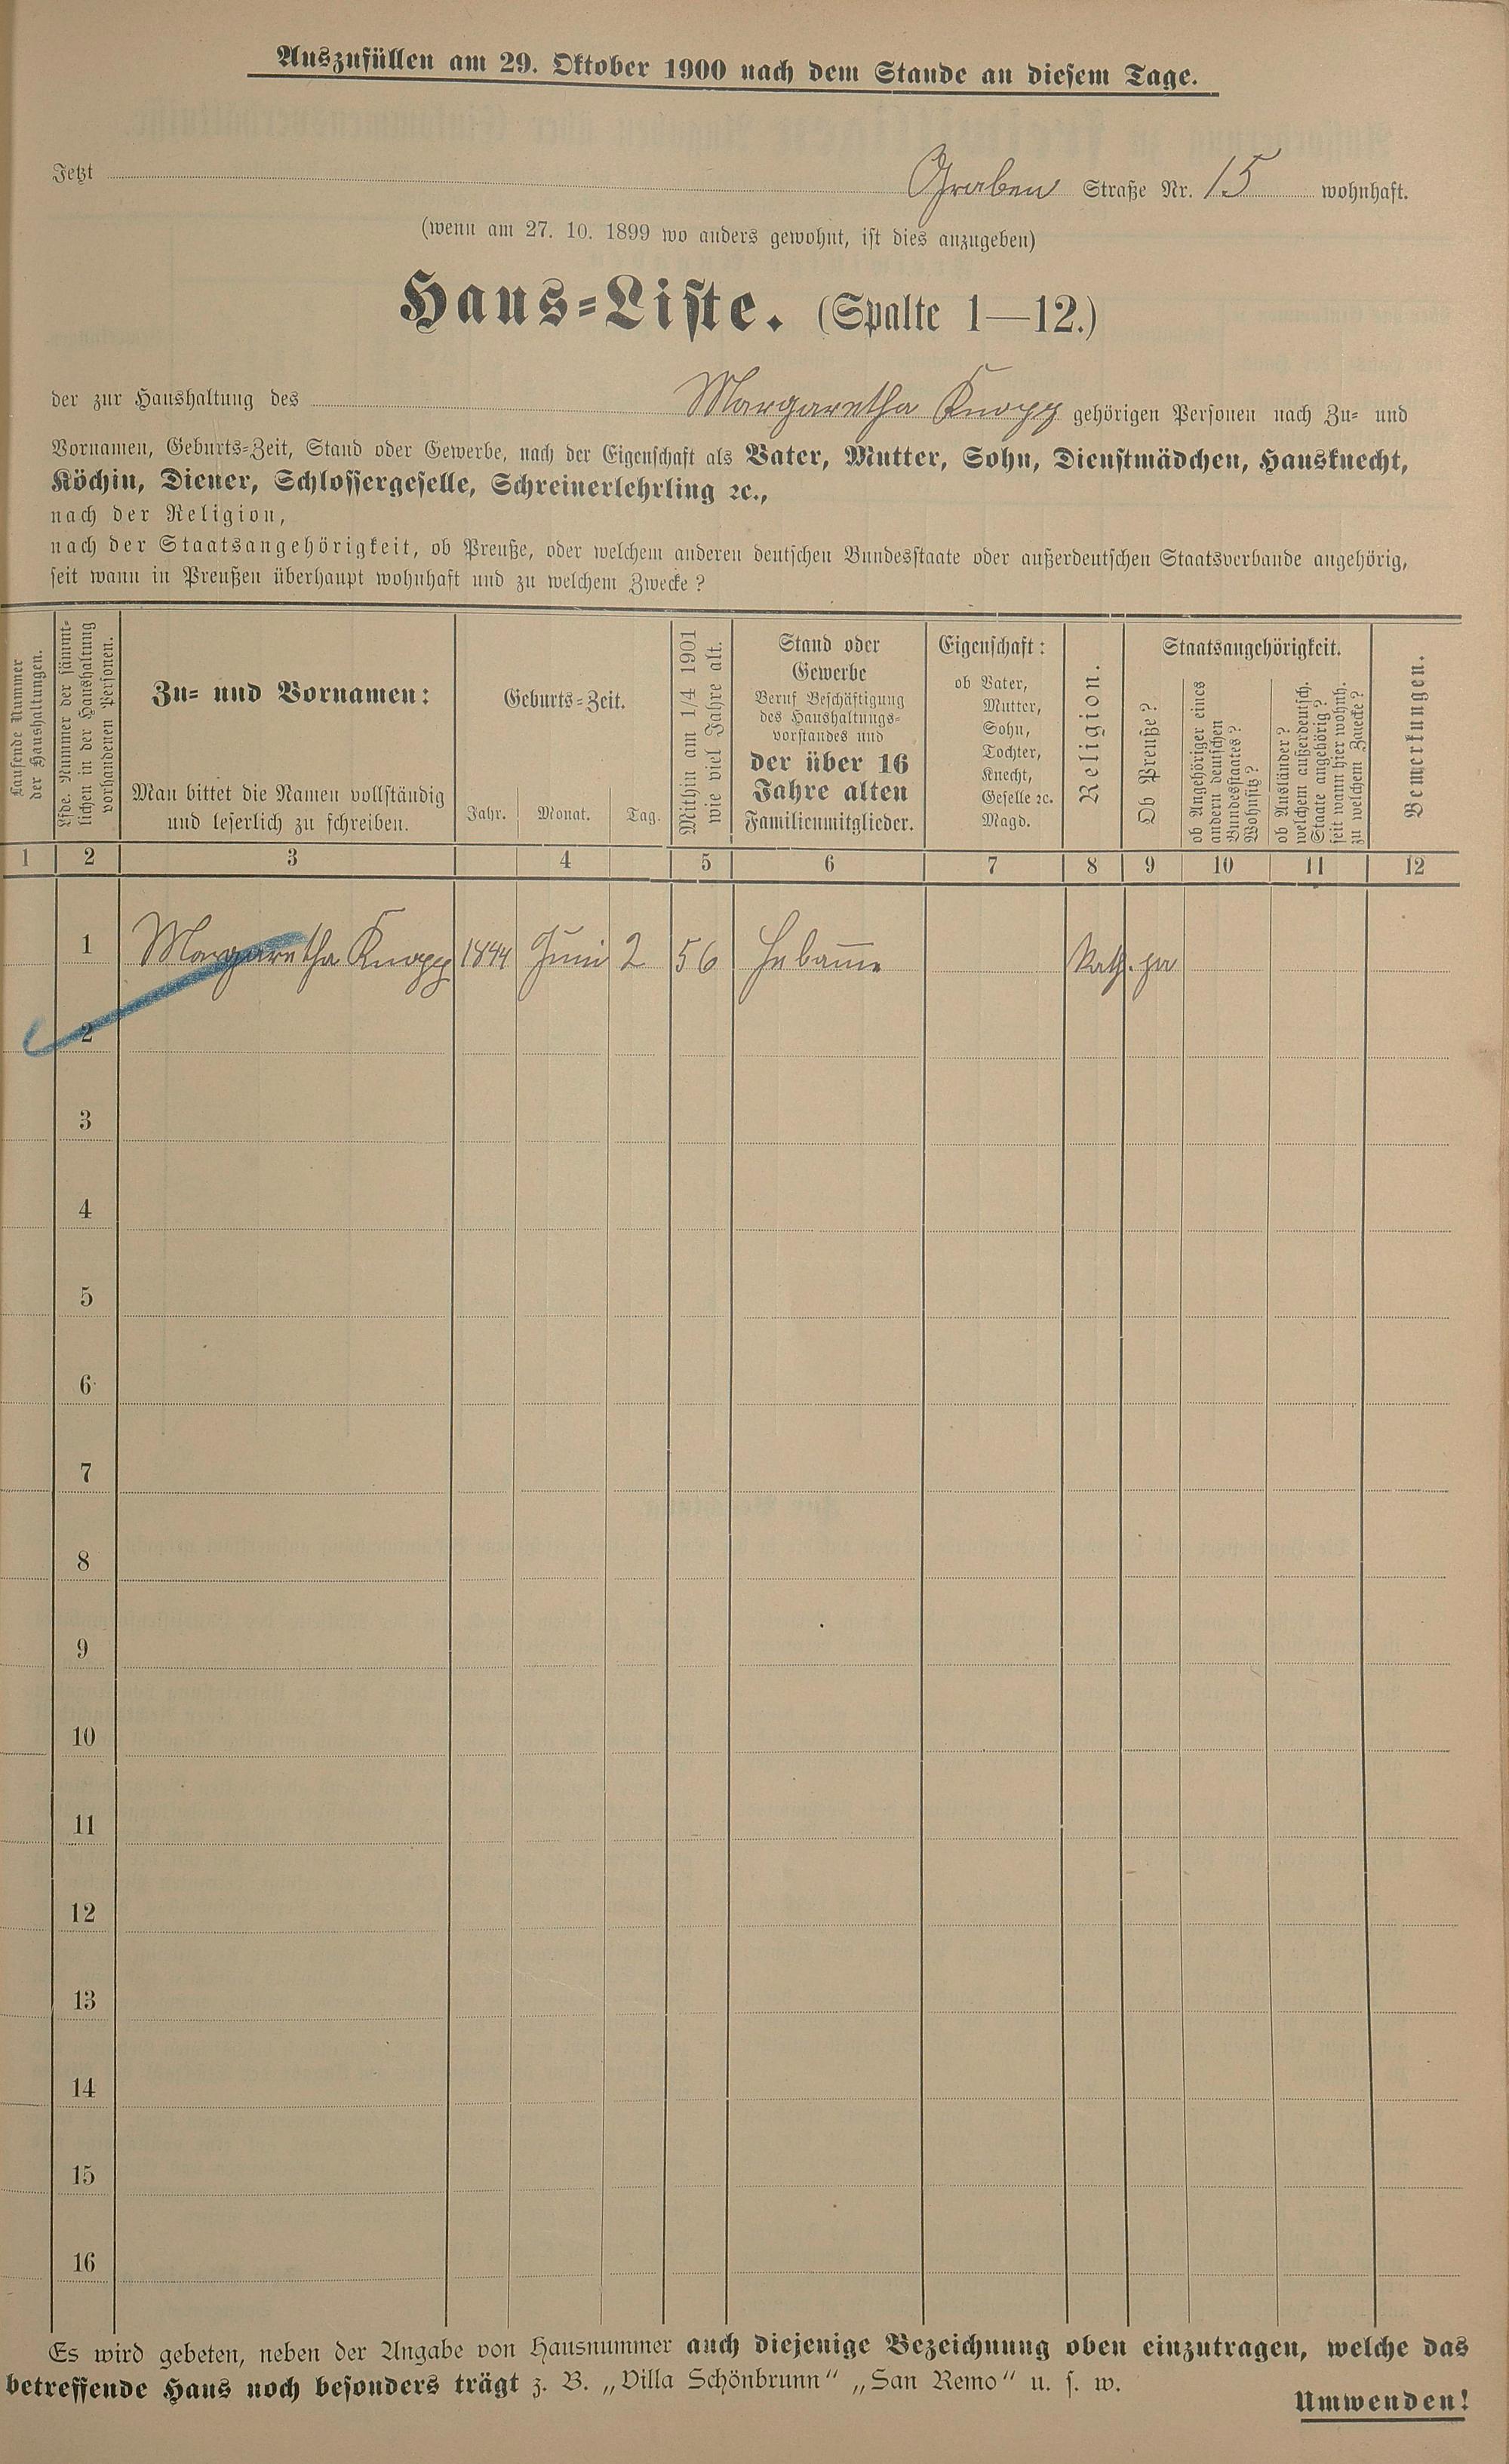 Auszufüllen am 29. Oktober 1900 nach dem Stande an diesem Tage.
Jetzt Graben Straße Nr. 15 wohnhaft.
(wenn am 27. 10. 1899 wo anders gewohnt, ist dies anzugeben)
Haus-Liste. (Spalte 1—12.)
der zur Haushaltung des Margaretha Knopp gehörigen Personen nach Zu- und
Vornamen, Geburts-Zeit, Stand oder Gewerbe, nach der Eigenschaft als Vater, Mutter, Sohn, Dienstmädchen, Hausknecht,
Köchin, Diener, Schlossergeselle, Schreinerlehrling ꝛc.,
nach der Religion,
nach der Staatsangehörigkeit, ob Preuße, oder welchem anderen deutschen Bundesstaate oder außerdeutschen Staatsverbande angehörig,
seit wann in Preußen überhaupt wohnhaft und zu welchem Zwecke?
Laufende Nummer
der Haushaltungen.
Lfde. Nummer der sämmt-
lichen in der Haushaltung
vorhandenen Personen.
Zu- und Vornamen:
Man bittet die Namen vollständig
und leserlich zu schreiben.
Geburts-Zeit.
Jahr. Monat. Tag.
Mithin am 1/4 1901
wie viel Jahre alt.
Stand oder
Gewerbe
Beruf Beschäftigung
des Haushaltungs-
vorstandes und
der über 16
Jahre alten
Familienmitglieder.
Eigenschaft:
ob Vater,
Mutter,
Sohn,
Tochter,
Knecht,
Geselle ꝛc.
Magd.
Religion.
Staatsangehörigkeit.
Ob Preuße?
ob Angehöriger eines
andern deutschen
Bundesstaates?
Wohnsitz?
ob Ausländer?
welchem außerdeutsch.
Staate angehörig?
seit wann hier wohnh.
zu welchem Zwecke?
Bemerkungen.
1 2 3 4 5 6 7 8 9 10 11 12
1 Margaretha Knopp 1844 Juni 2 56 Hebamme Kath. ja
2
3
4
5
6
7
8
9
10
11
12
13
14
15
16
Es wird gebeten, neben der Angabe von Hausnummer auch diejenige Bezeichnung oben einzutragen, welche das
betreffende Haus noch besonders trägt z. B. „Villa Schönbrunn“ „San Remo“ u. s. w.
Umwenden!